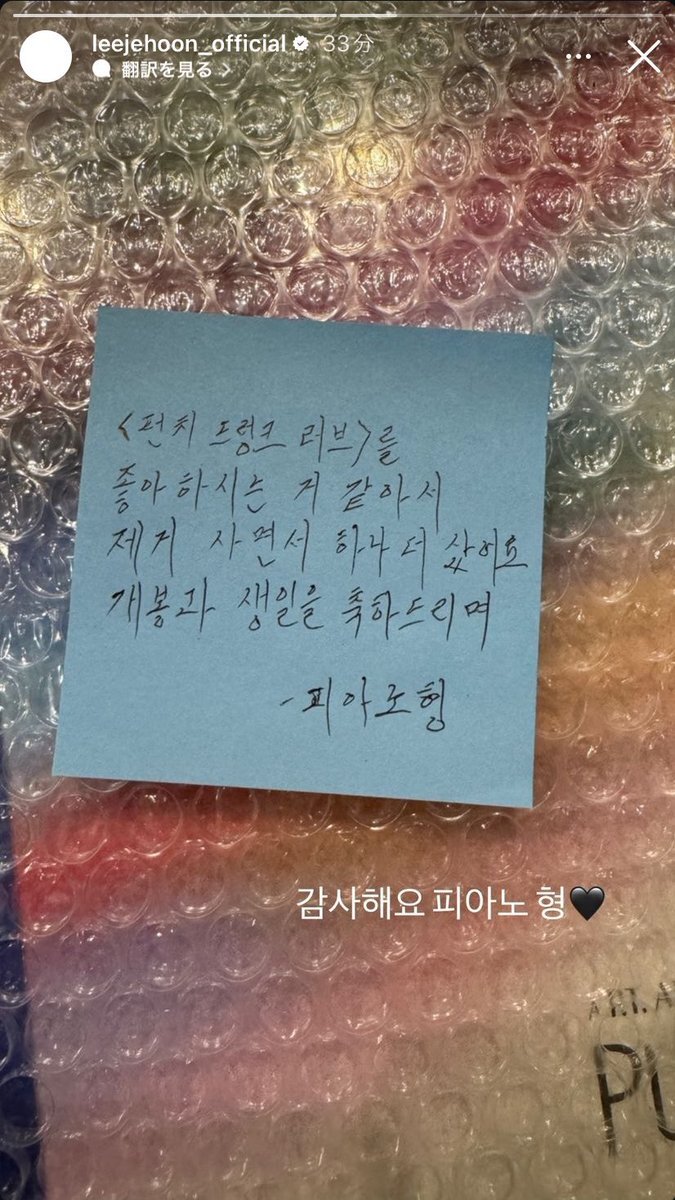 leejehoon_official 33分
翻訳を見る >
<펀치 드렁크 러브>를
좋아하시는 거 같아서
제거 사면서 하나 더 샀어요
개봉과 생일을 축하드리며
-피아노형
감사해요 피아노 형🖤
ART. A
PU